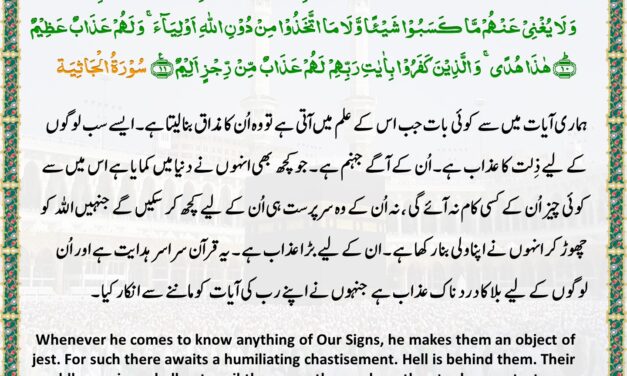 وَلَا يُغْنِيْ عَنْهُمْ مَّا كَسَبُوْا شَيْـًٔا وَّلَا مَا اتَّخَذُوْا مِنْ دُوْنِ اللّٰهِ اَوْلِيَآءَ ۚ وَلَهُمْ عَذَابٌ عَظِيْمٌ
۝۱۰ هٰذَا هُدًى ۚ وَالَّذِيْنَ كَفَرُوْا بِاٰيٰتِ رَبِّهِمْ لَهُمْ عَذَابٌ مِّنْ رِّجْزٍ اَلِيْمٌ ۝۱۱ سُوْرَةُ الْجَاثِيَة
ہماری آیات میں سے کوئی بات جب اس کے علم میں آتی ہے تو وہ اُن کا مذاق بنا لیتا ہے۔ ایسے سب لوگوں
کے لیے ذِلت کا عذاب ہے۔ اُن کے آگے جہنم ہے۔ جو کچھ بھی انہوں نے دنیا میں کمایا ہے اس میں سے
کوئی چیز اُن کے کسی کام نہ آئے گی، نہ اُن کے وہ سرپرست ہی اُن کے لیے کچھ کر سکیں گے جنہیں اللہ کو
چھوڑ کر انہوں نے اپنا ولی بنا رکھا ہے۔ ان کے لیے بڑا عذاب ہے۔ یہ قرآن سراسر ہدایت ہے اور اُن
لوگوں کے لیے بلا کا دردناک عذاب ہے جنہوں نے اپنے رب کی آیات کو ماننے سے انکار کیا۔
Whenever he comes to know anything of Our Signs, he makes them an object of
jest. For such there awaits a humiliating chastisement. Hell is behind them. Their